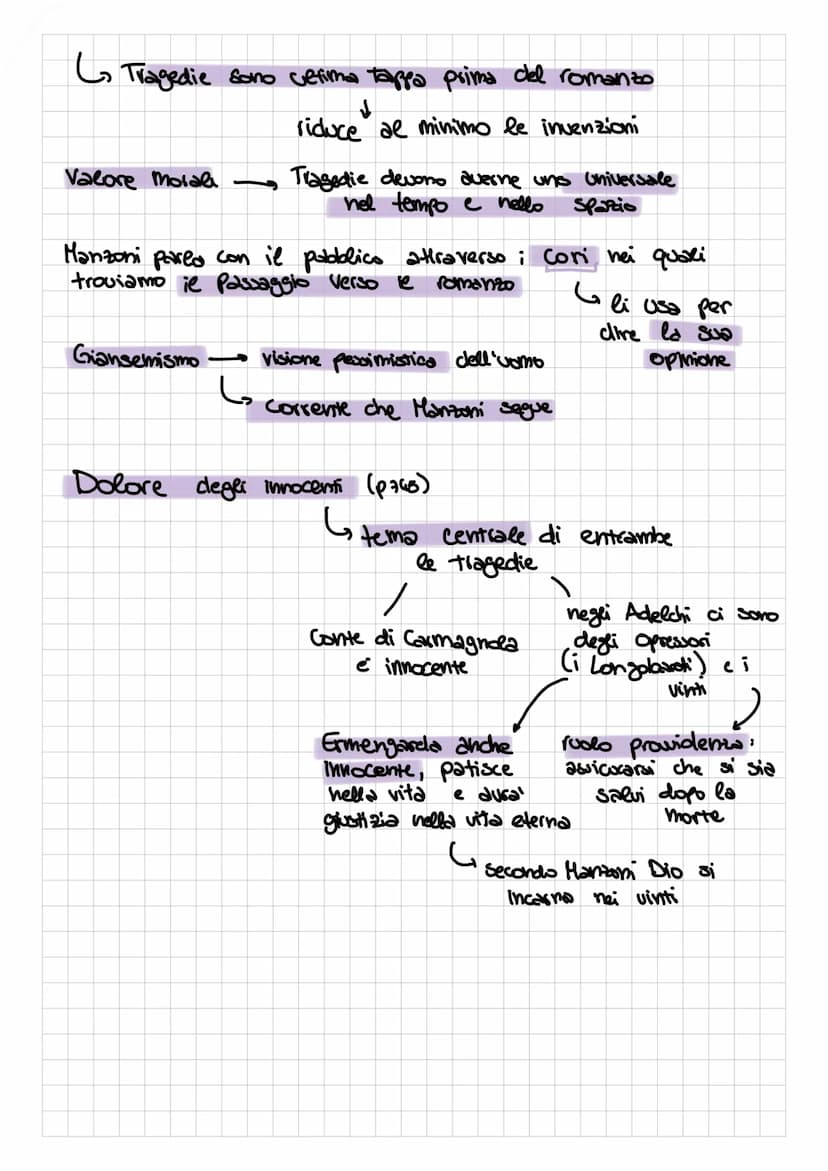 ↳ Tragedie sono ultima tappa prima del romanzo
↓
riduce al minimo le invenzioni
Valore Morale → Tragedie devono averne uno universale
nel tempo e nello spazio
Manzoni parla con il pubblico attraverso i cori nei quali
troviamo il passaggio verso il romanzo
↳ li usa per
dire la sua
opinione
Giansenismo → visione pessimistica dell'uomo
↳ corrente che Manzoni segue
Dolore degli innocenti (p768)
↳ tema centrale di entrambe
le tragedie
Conte di Carmagnola
è innocente
negli Adelchi ci sono
degli opressori
(i Longobardi) e i
vinti
Ermengarda anche
innocente, patisce
nella vita e avra'
giustizia nella vita eterna
ruolo provvidenza:
assicurarsi che si sia
salvi dopo la
morte
↳ secondo Manzoni Dio si
incarna nei vinti